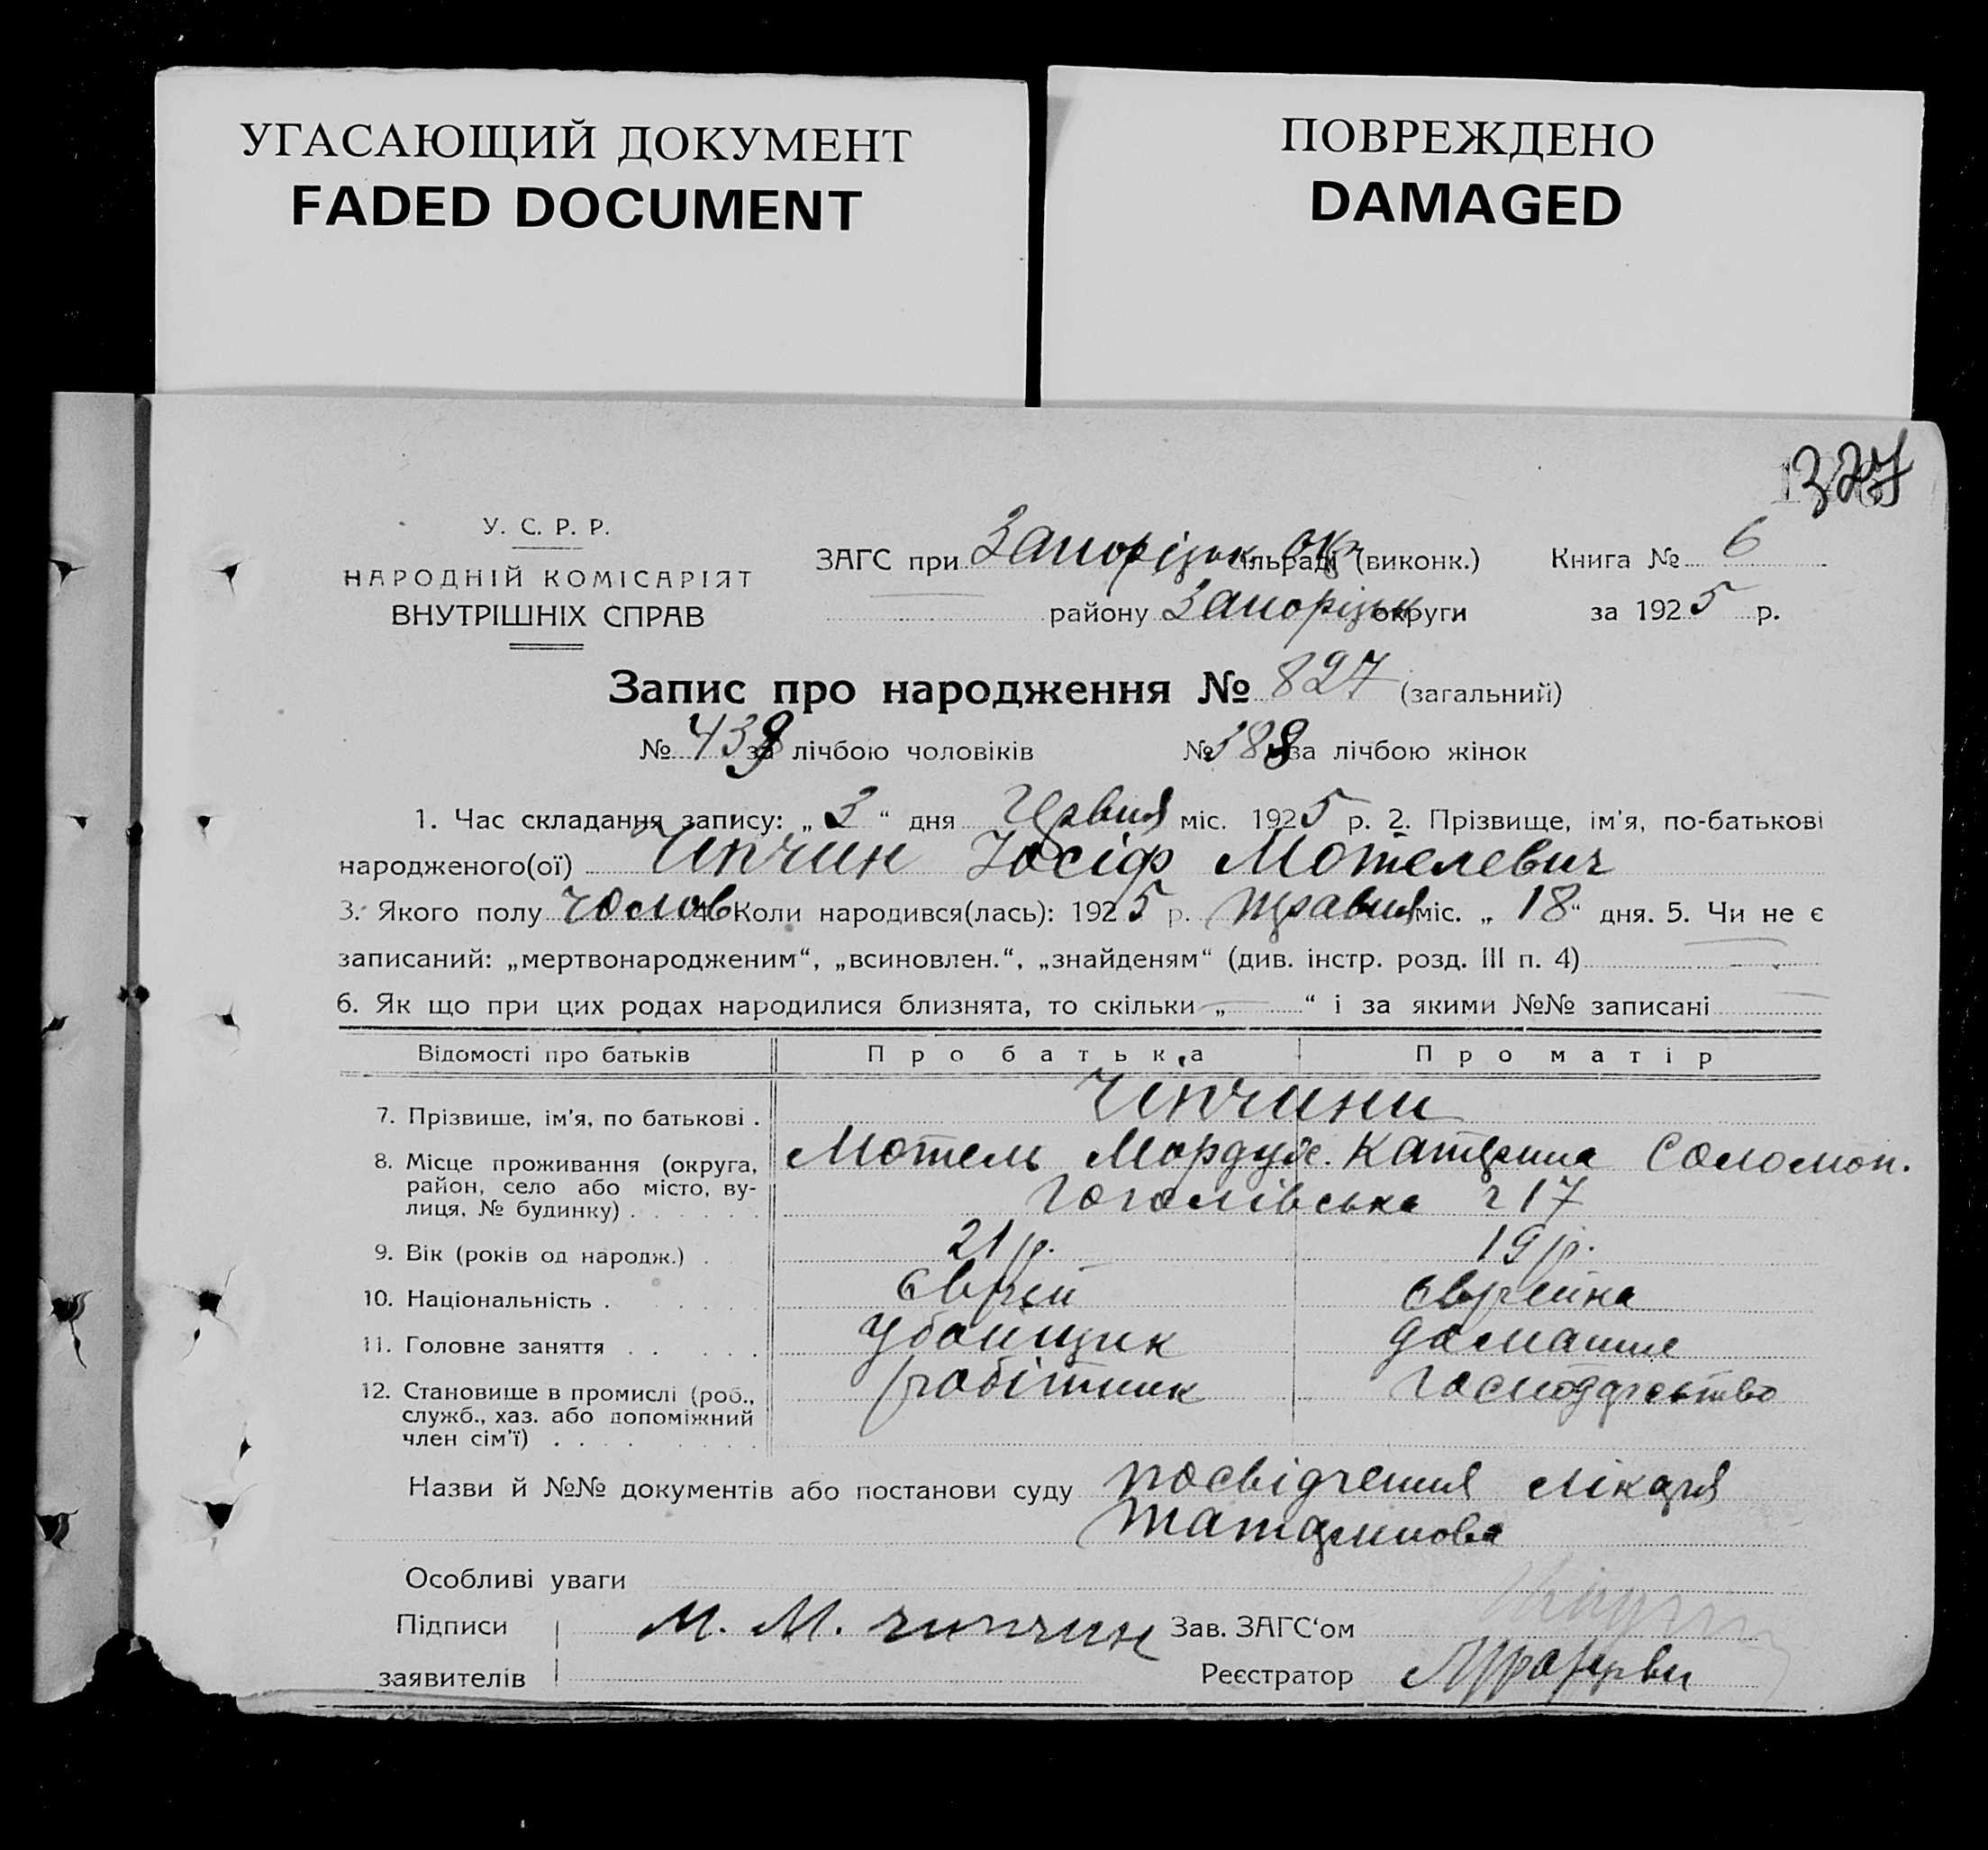 УГАСАЮЩИЙ ДОКУМЕНТ
FADED DOCUMENT
ПОВРЕЖДЕНО
DAMAGED
327
У. С. Р. Р.
НАРОДНІЙ КОМІСАРІЯТ
ВНУТРІШНІХ СПРАВ
ЗАГС при Запорізьк. окр. сільраді (виконк.) Книга № 6
району Запорізьк. округи за 1925 р.
Запис про народження № 827 (загальний)
№ 439 за лічбою чоловіків № 388 за лічбою жінок
1. Час складання запису: „ 3 “ дня Червня міс. 1925 р. 2. Прізвище, ім'я, по-батькові
народженого(ої) Чіпчин Іосіф Мотелевич
3. Якого полу чолов 4. Коли народився(лась): 1925 р. травня міс. „ 18 “ дня. 5. Чи не є
записаний: „мертвонародженим“, „всиновлен.“, „знайденям“ (див. інстр. розд. III п. 4)
6. Як що при цих родах народилися близнята, то скільки „ — “ і за якими №№ записані
Відомості про батьків Про батька Про матір
7. Прізвище, ім'я, по батькові . Чіпчини
Мотель Мордух. Катерина Соломон.
8. Місце проживання (округа,
район, село або місто, ву-
лиця, № будинку) . Гоголівська 217
9. Вік (років од народж.) . 21 р. 19 р.
10. Національність . Єврей Єврейка
11. Головне заняття . . убойщик домашнє
12. Становище в промислі (роб., робітник господарство
служб., хаз. або допоміжний
член сім'ї) . .
Назви й №№ документів або постанови суду посвідчення лікаря
Особливі уваги
Підписи заявителів М. М. Чипчин Зав. ЗАГС'ом
Реєстратор